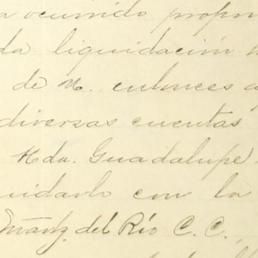 a ocurrido propon
da liquidación
de N. entonces a
diversas cuentas
Hda. Guadalupe
uidarlo con la
Martz. del Río C. C.,